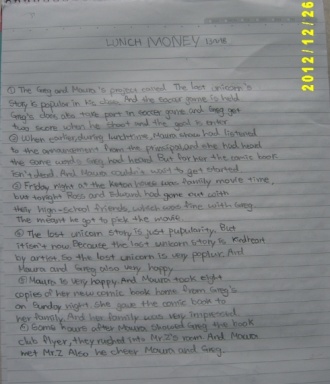 LUNCH MONEY
2012/12/26
① The Greg and Maura's project called The last unicorn's
story is popular in his class. And the soccer game is held
Greg's class, also take part in soccer game and Greg get
two score when he shoot and the goal is enter.
② When earlier, during lunchtime, Maura show had listened
to the announcement from the principal and she had heard
the same words Greg had heard. But for her the comic book
isn't dead. And Maura couldn't wait to get started
③ Friday night at the Kenton house was family movie time,
but tonight Ross and Edward had gone out with
their high-school friends, which was fine with Greg.
The meant he got to pick the movie.
④ The lost unicorn story is just pupularity. But
it isn't now. Because the last unicorn's story is
by artist. So the last unicorn is very poplur. And
Maura and Greg also very happy.
⑤ Maura is very happy. And Maura took eight
copies of her new comic book home from Greg's
on Sunday night she gave the comic book to
her family. And her family was very impressed
⑥ Some hours after Maura showed Greg the book
club flyer, they rushed into Mr.Z's room. And Maura
met Mr.Z. Also he cheer Maura and Greg.